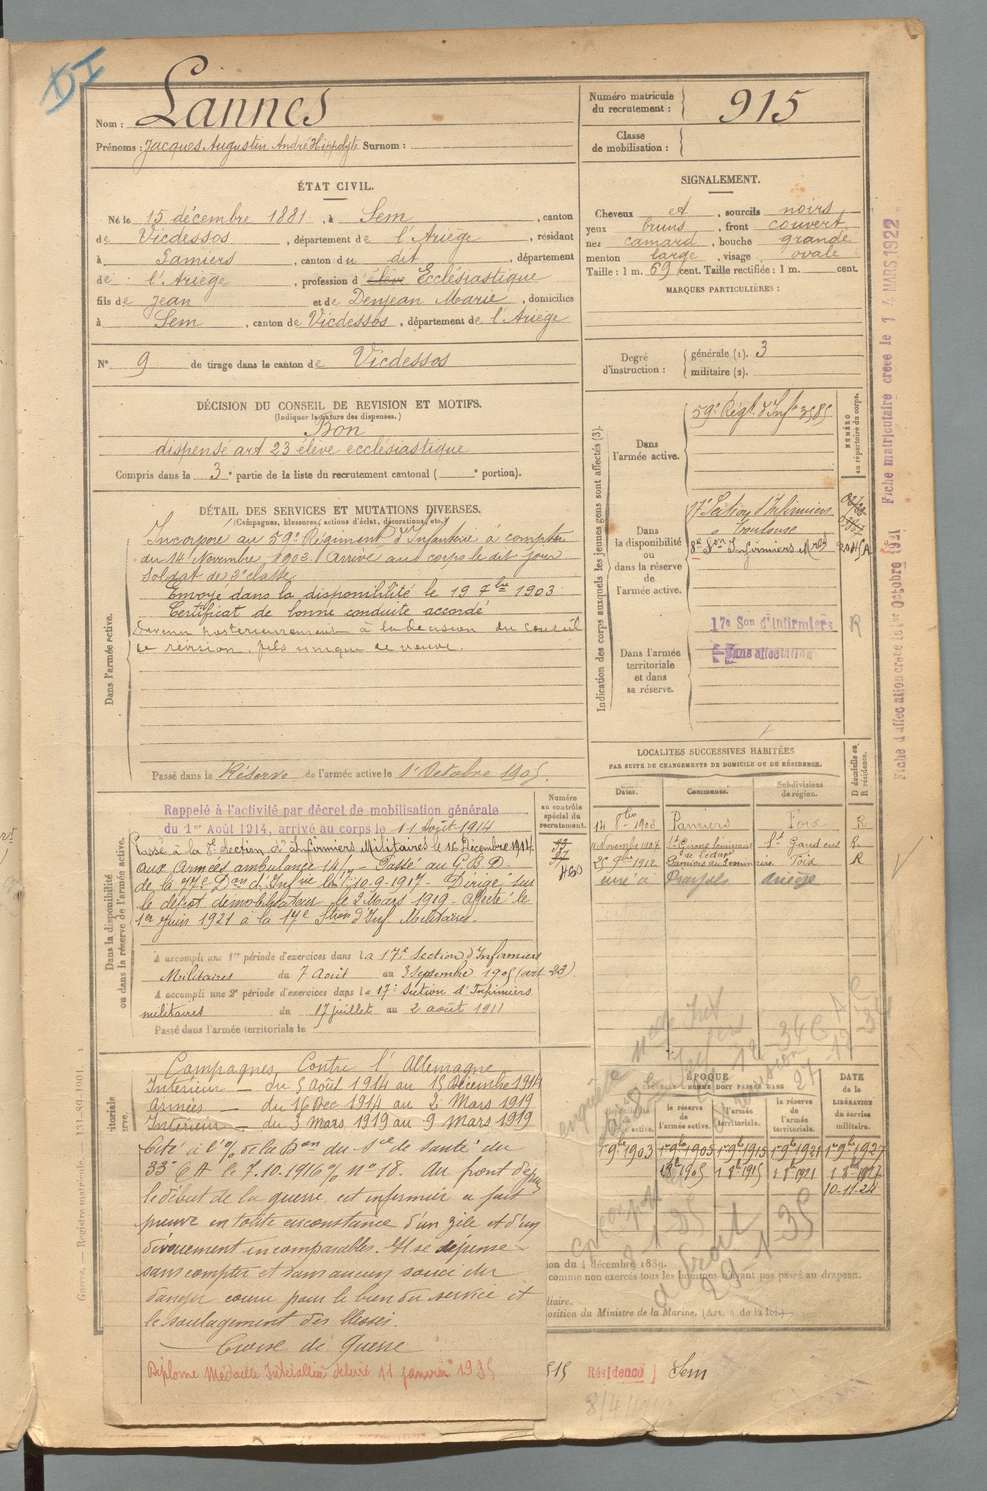 DI
Nom : Lannes
Prénoms : Jacques Augustin André Hippolyte Surnom :
Numéro matricule du recrutement : 915
Classe de mobilisation :
ÉTAT CIVIL.
Né le 15 décembre 1881, à Sem, canton
de Vicdessos, département de l'Ariège, résidant
à Pamiers, canton du dit, département
de l'Ariège, profession d'élève Ecclésiastique
fils de Jean et de Denjean Marie, domiciliés
à Sem, canton de Vicdessos, département de l'Ariège
N° 9 de tirage dans le canton de Vicdessos
SIGNALEMENT.
Cheveux et, sourcils noirs
yeux bruns, front couvert
nez camard, bouche grande
menton large, visage ovale
Taille : 1 m. 69 cent. Taille rectifiée : 1 m. cent.
MARQUES PARTICULIÈRES :
Degré d'instruction : générale (1). 3
militaire (2).
DÉCISION DU CONSEIL DE REVISION ET MOTIFS.
(Indiquer la nature des dispenses.)
Bon
dispensé art 23 élève ecclésiastique
Compris dans la 3e partie de la liste du recrutement cantonal ( e portion).
DÉTAIL DES SERVICES ET MUTATIONS DIVERSES.
(Campagnes, blessures, actions d'éclat, décorations, etc.)
Dans l'armée active.
Incorporé au 59e Régiment d'Infanterie à compter
du 14 Novembre 1903. Arrivé au corps le dit jour
Soldat de 2e classe
Envoyé dans la disponibilité le 19 7bre 1903
Certificat de bonne conduite accordé
Devenu postérieurement à la décision du conseil
de révision, fils unique de veuve.
Passé dans la Réserve de l'armée active le 1er Octobre 1905.
Indication des corps auxquels les jeunes gens sont affectés (3).
NUMÉRO au répertoire du corps.
Dans l'armée active.
59e Régt d'Infie 3585
Dans la disponibilité ou dans la réserve de l'armée active.
17e Section d'Infirmiers
à Toulouse
8e Son Infirmiers Mres
Dans l'armée territoriale et dans sa réserve.
17e Son d'Infirmiers R
Sans affectation
Fiche matriculaire créée le 1 4 MARS 1922
Fiche d'affectation créée le 1er Octobre 1921
LOCALITÉS SUCCESSIVES HABITÉES
PAR SUITE DE CHANGEMENTS DE DOMICILE OU DE RÉSIDENCE.
Dates. Communes. Subdivisions de région. D domicile ou R résidence.
14 8bre 1903 Pamiers Foix R
St Gaudens R
25 9bre 1912 Foix R
curé à Prayols Ariège
Dans la disponibilité ou dans la réserve de l'armée active.
Numéro au contrôle spécial du recrutement.
460
Rappelé à l'activité par décret de mobilisation générale
du 1er Août 1914, arrivé au corps le 11 août 1914
Passé à la 8e Section d'Infirmiers Militaires le 16 Décembre 1914.
aux Armées ambulance 14/ Passé au G.B.D.
de la 77e Don d'Infrie le 10-9-1917 - Dirigé sur
le dépôt démobilisateur le 2 Mars 1919 - Affecté le
1er Juin 1921 à la 17e Ston d'Inf Militaires.
A accompli une 1re période d'exercices dans la 17e Section d'Infirmiers
Militaires du 7 Août au 3 Septembre 1905 (art 23).
A accompli une 2e période d'exercices dans la 17e Section d'Infirmiers
militaires du 17 juillet au 2 août 1911
Passé dans l'armée territoriale le
Campagnes Contre l'Allemagne
Intérieur - du 5 Août 1914 au 15 Décembre 1914
Armées - du 16 Dec 1914 au 2 Mars 1919
Intérieur - du 3 Mars 1919 au 9 Mars 1919
Cité à l'% de la Don du Sce de Santé du
33e CA le 7.10.1916 % n° 18. Au front depuis
le début de la guerre, cet infirmier a fait
preuve en toute circonstance d'un zèle et d'un
dévouement incomparables. Il se dépense
sans compter et sans aucun souci du
danger couru pour le bien du service et
le soulagement des blessés.
Croix de Guerre
Diplome Médaille Interalliée délivré 11 janvier 1935
ÉPOQUE
LAQUELLE L'HOMME DOIT PASSER DANS
la réserve active. l'armée territoriale. la réserve territoriale.
DATE de la LIBÉRATION du service militaire.
1er 9bre 1903 1er 9bre 1905 1er 9bre 1915 1er 9bre 1921 1er 9bre 1927
1 8bre 1905 1 8bre 1915 1 8bre 1921 1 8bre 1927
10-11-24
du 4 décembre 1889.
comme non exercés tous les hommes n'ayant pas passé au drapeau.
disposition du Ministre de la Marine. (Art. 4 de la loi.)
Résidence Sem